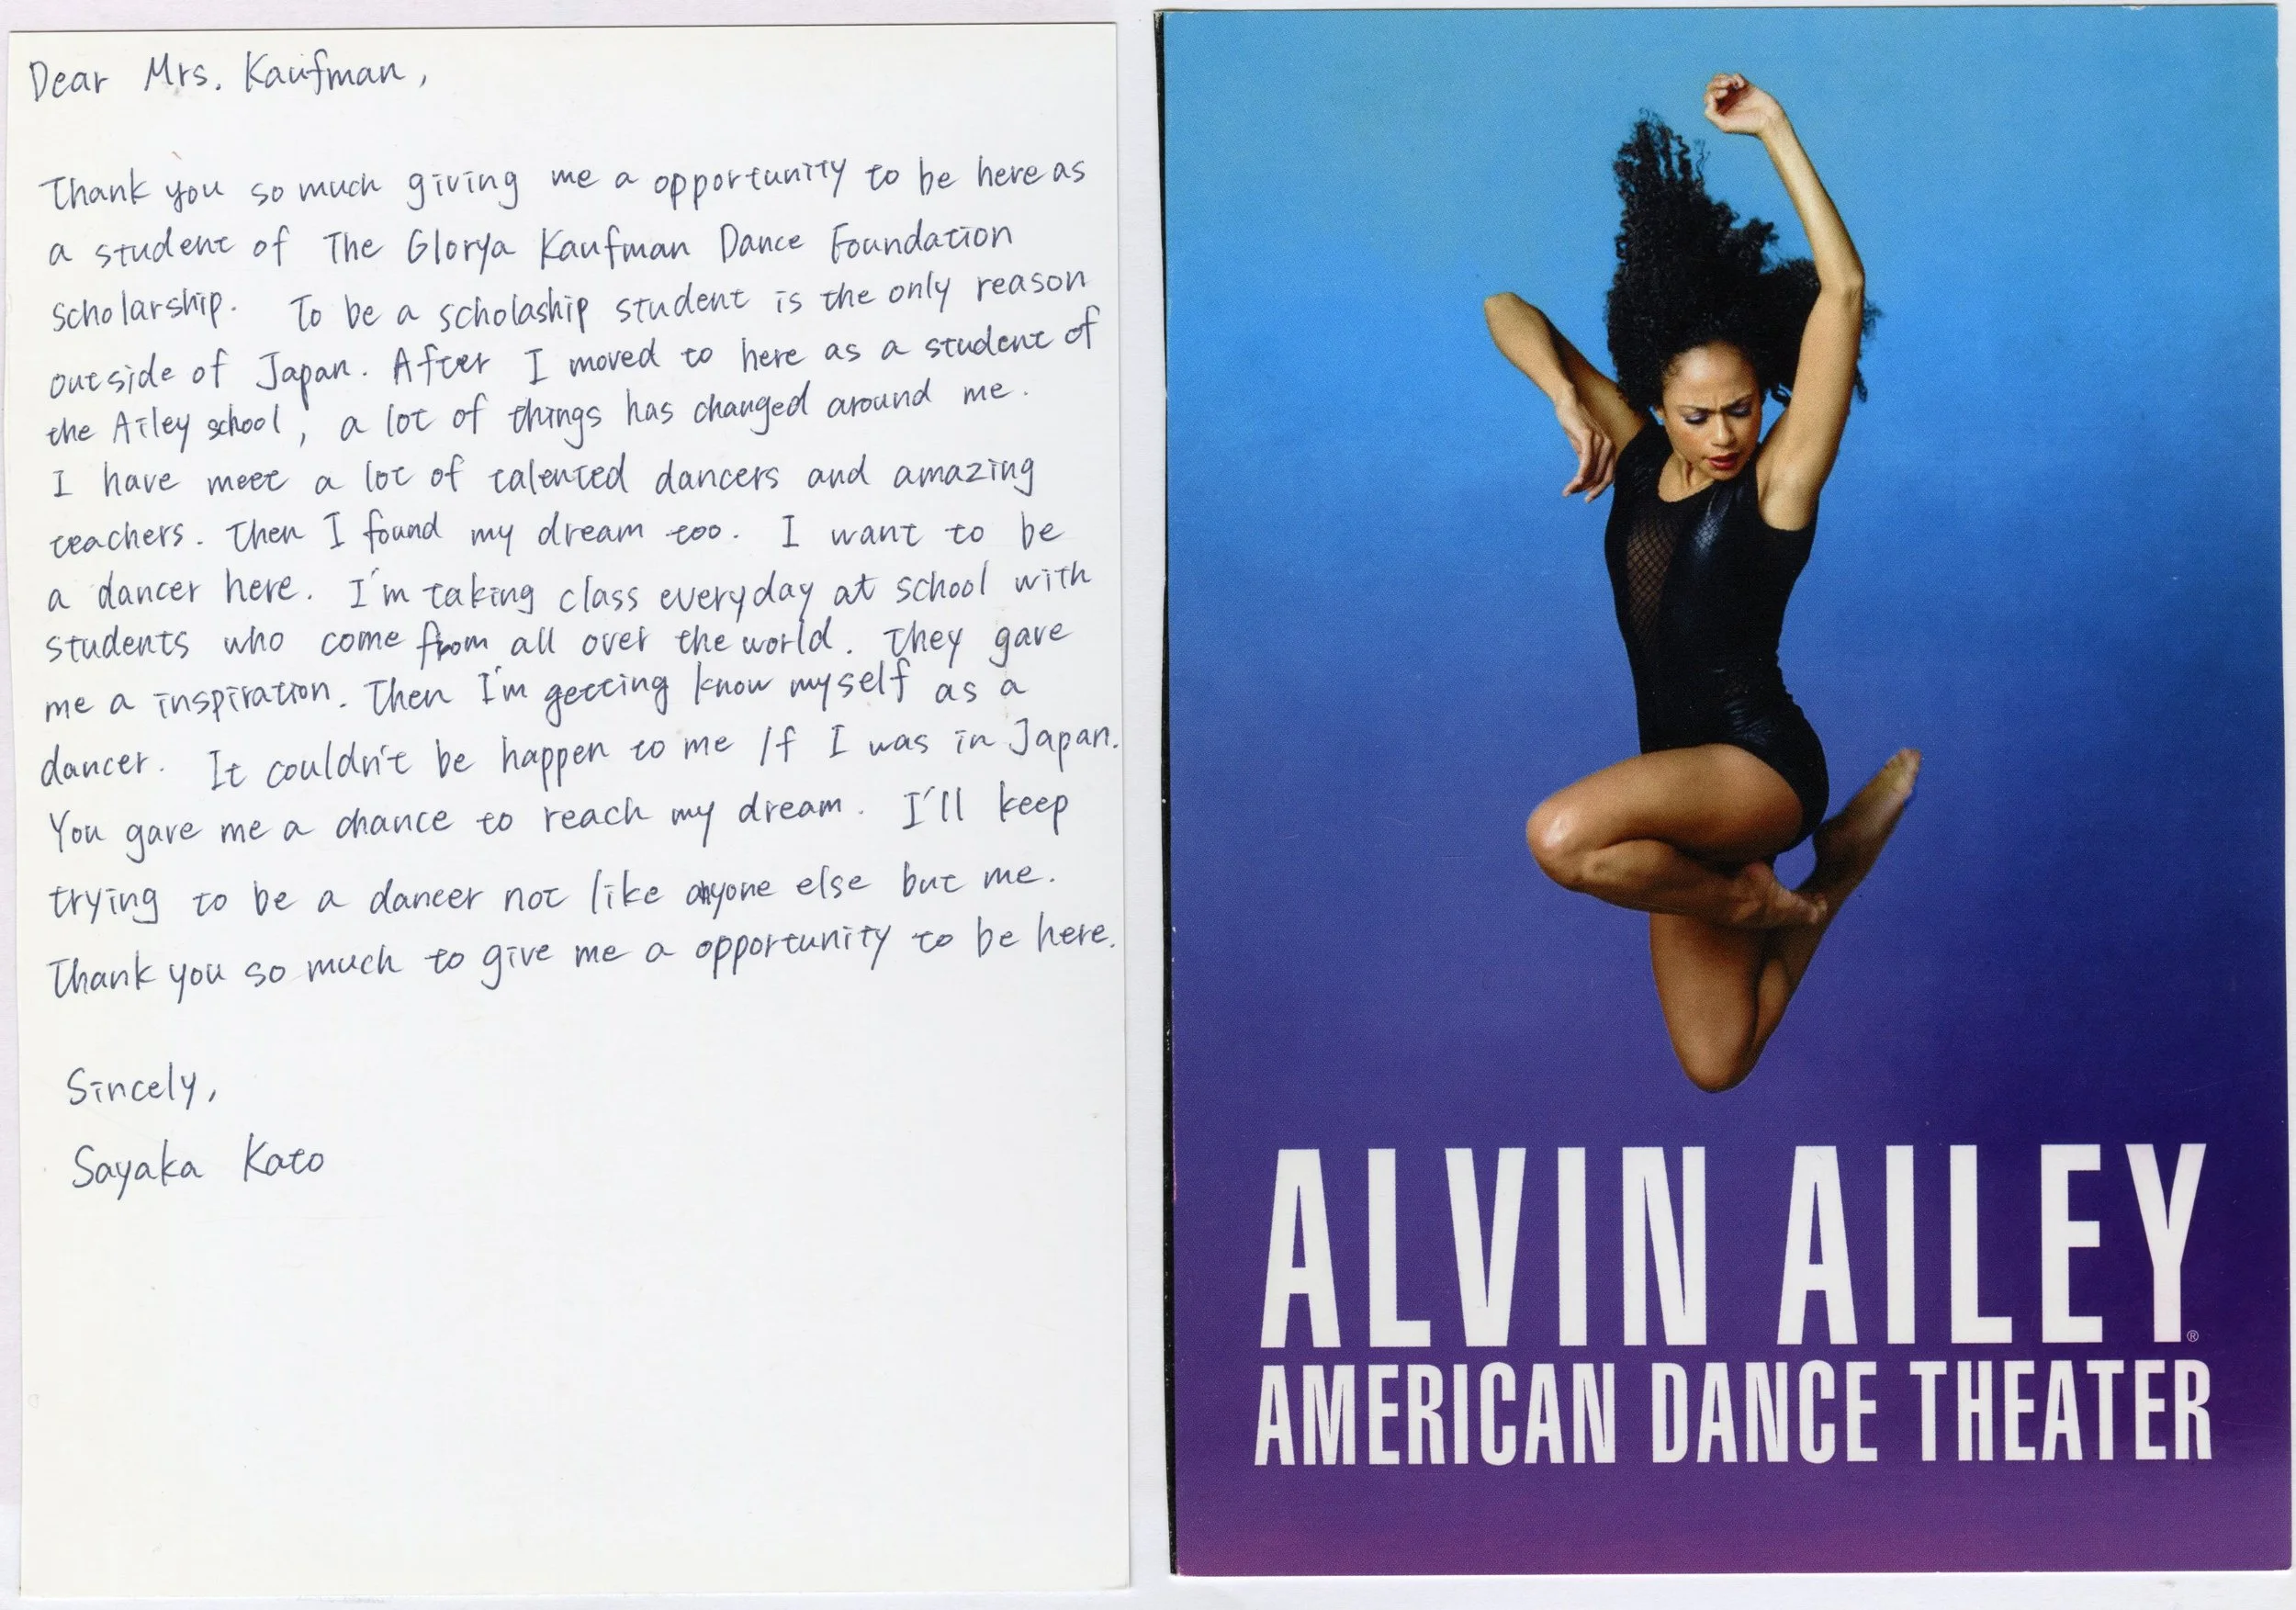 Dear Mrs. Kaufman,
Thank you so much giving me a opportunity to be here as
a student of The Glorya Kaufman Dance Foundation
scholarship. To be a scholaship student is the only reason
outside of Japan. After I moved to here as a student of
the Ailey school, a lot of things has changed around me.
I have meet a lot of talented dancers and amazing
teachers. Then I found my dream too. I want to be
a dancer here. I'm taking class everyday at school with
students who come from all over the world. They gave
me a inspiration. Then I'm getting know myself as a
dancer. It couldn't be happen to me If I was in Japan.
You gave me a chance to reach my dream. I'll keep
trying to be a dancer not like anyone else but me.
Thank you so much to give me a opportunity to be here.
Sincely,
Sayaka Kato
ALVIN AILEY®
AMERICAN DANCE THEATER